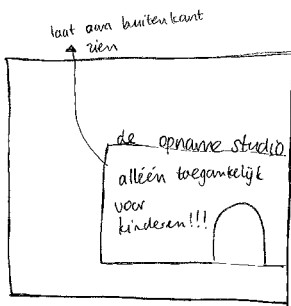 laat aan buitenkant
zien
de opname studio
alléén toegankelijk
voor
kinderen!!!